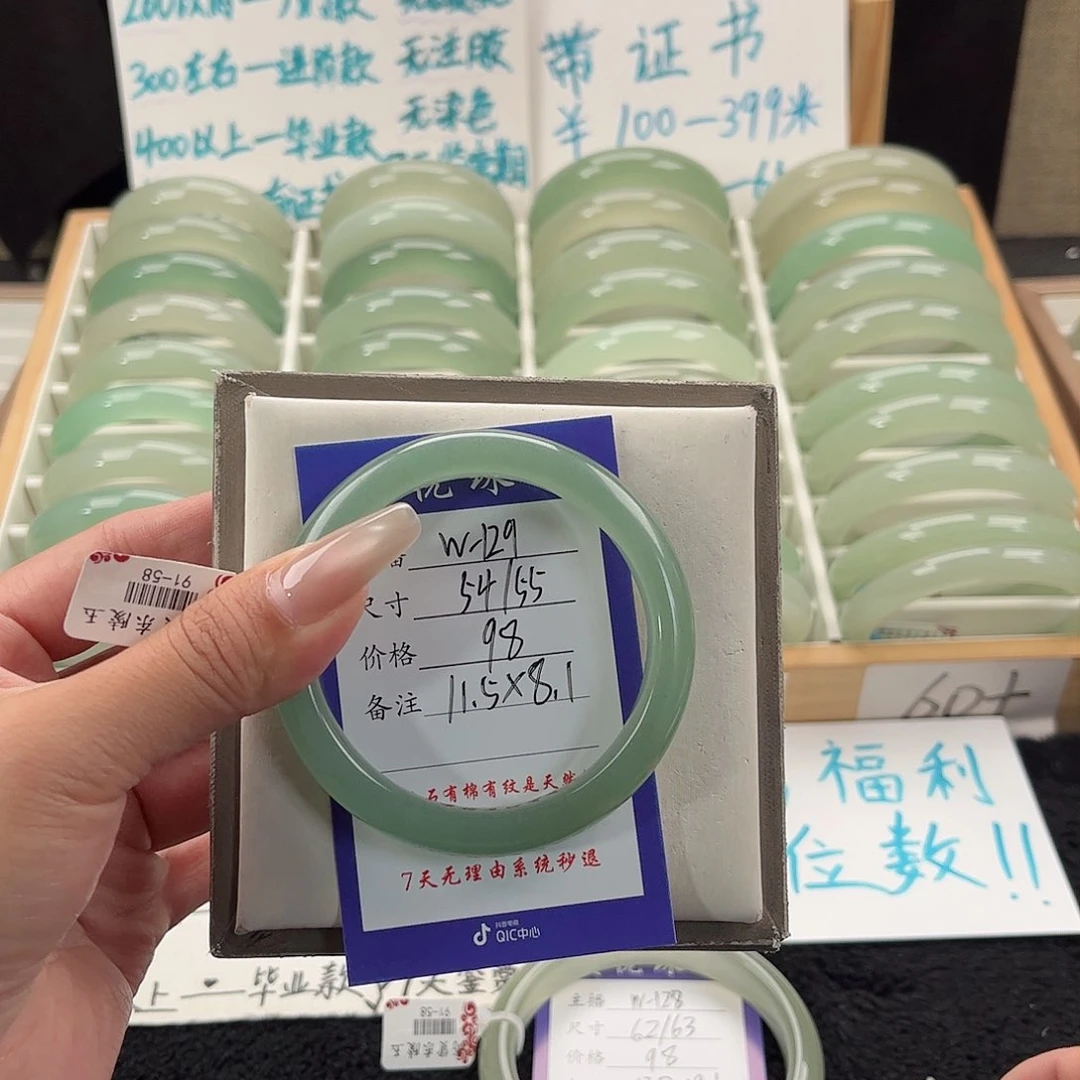 300左右一进阶款
无注胶
400以上一毕业款
无染色
带证书
¥100-399米
60+
福利
位数!!
W-129
尺寸 54/55
价格 98
备注 11.5×8.1
石有棉有纹是天然
7天无理由系统秒退
抖音电商
QIC中心
91-58
东陵玉
上一毕业款
7天鉴赏
主播 W-128
尺寸 62/63
价格 98
91-58
东陵玉